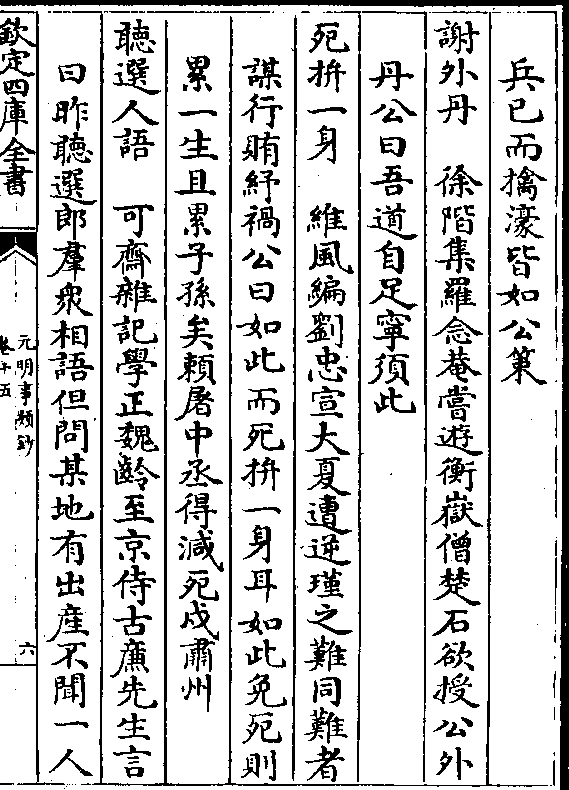 兵已而擒濠皆如公策
謝外丹　徐階集羅念菴嘗遊衡嶽僧楚石欲授公外
丹公曰吾道自足寧須此
死拚一身　維風編劉忠宣大夏遭逆瑾之難同難者
謀行賄紓禍公曰如此而死拚一身耳如此免死則
累一生且累子孫矣頼屠中丞得減死戍肅州
聽選人語　可齋雜記學正魏齡至京侍古廉先生言
曰昨聽選郎羣衆相語但問某地有出產不聞一人
欽定四庫全書
元明事類鈔
卷十五
六